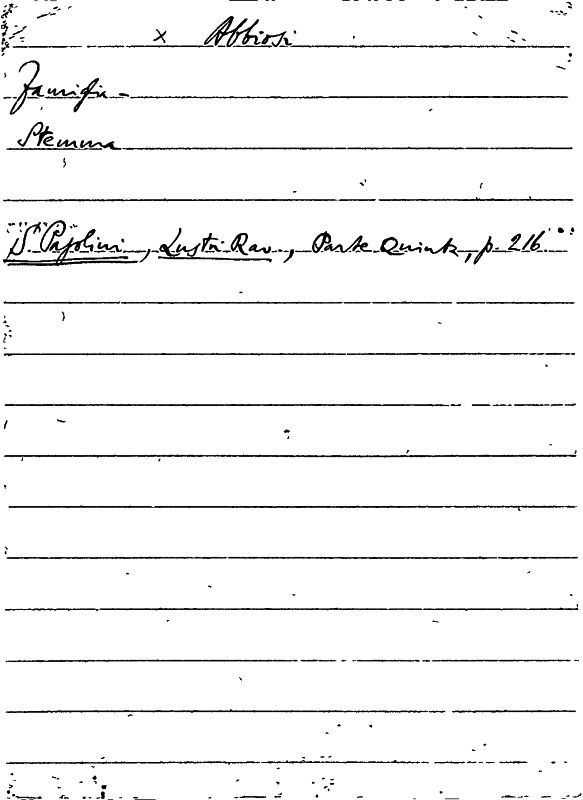 x Abbiosi
Famiglia -
Stemma
S. Pasolini, Lustri Rav., Parte Quinta, p. 216